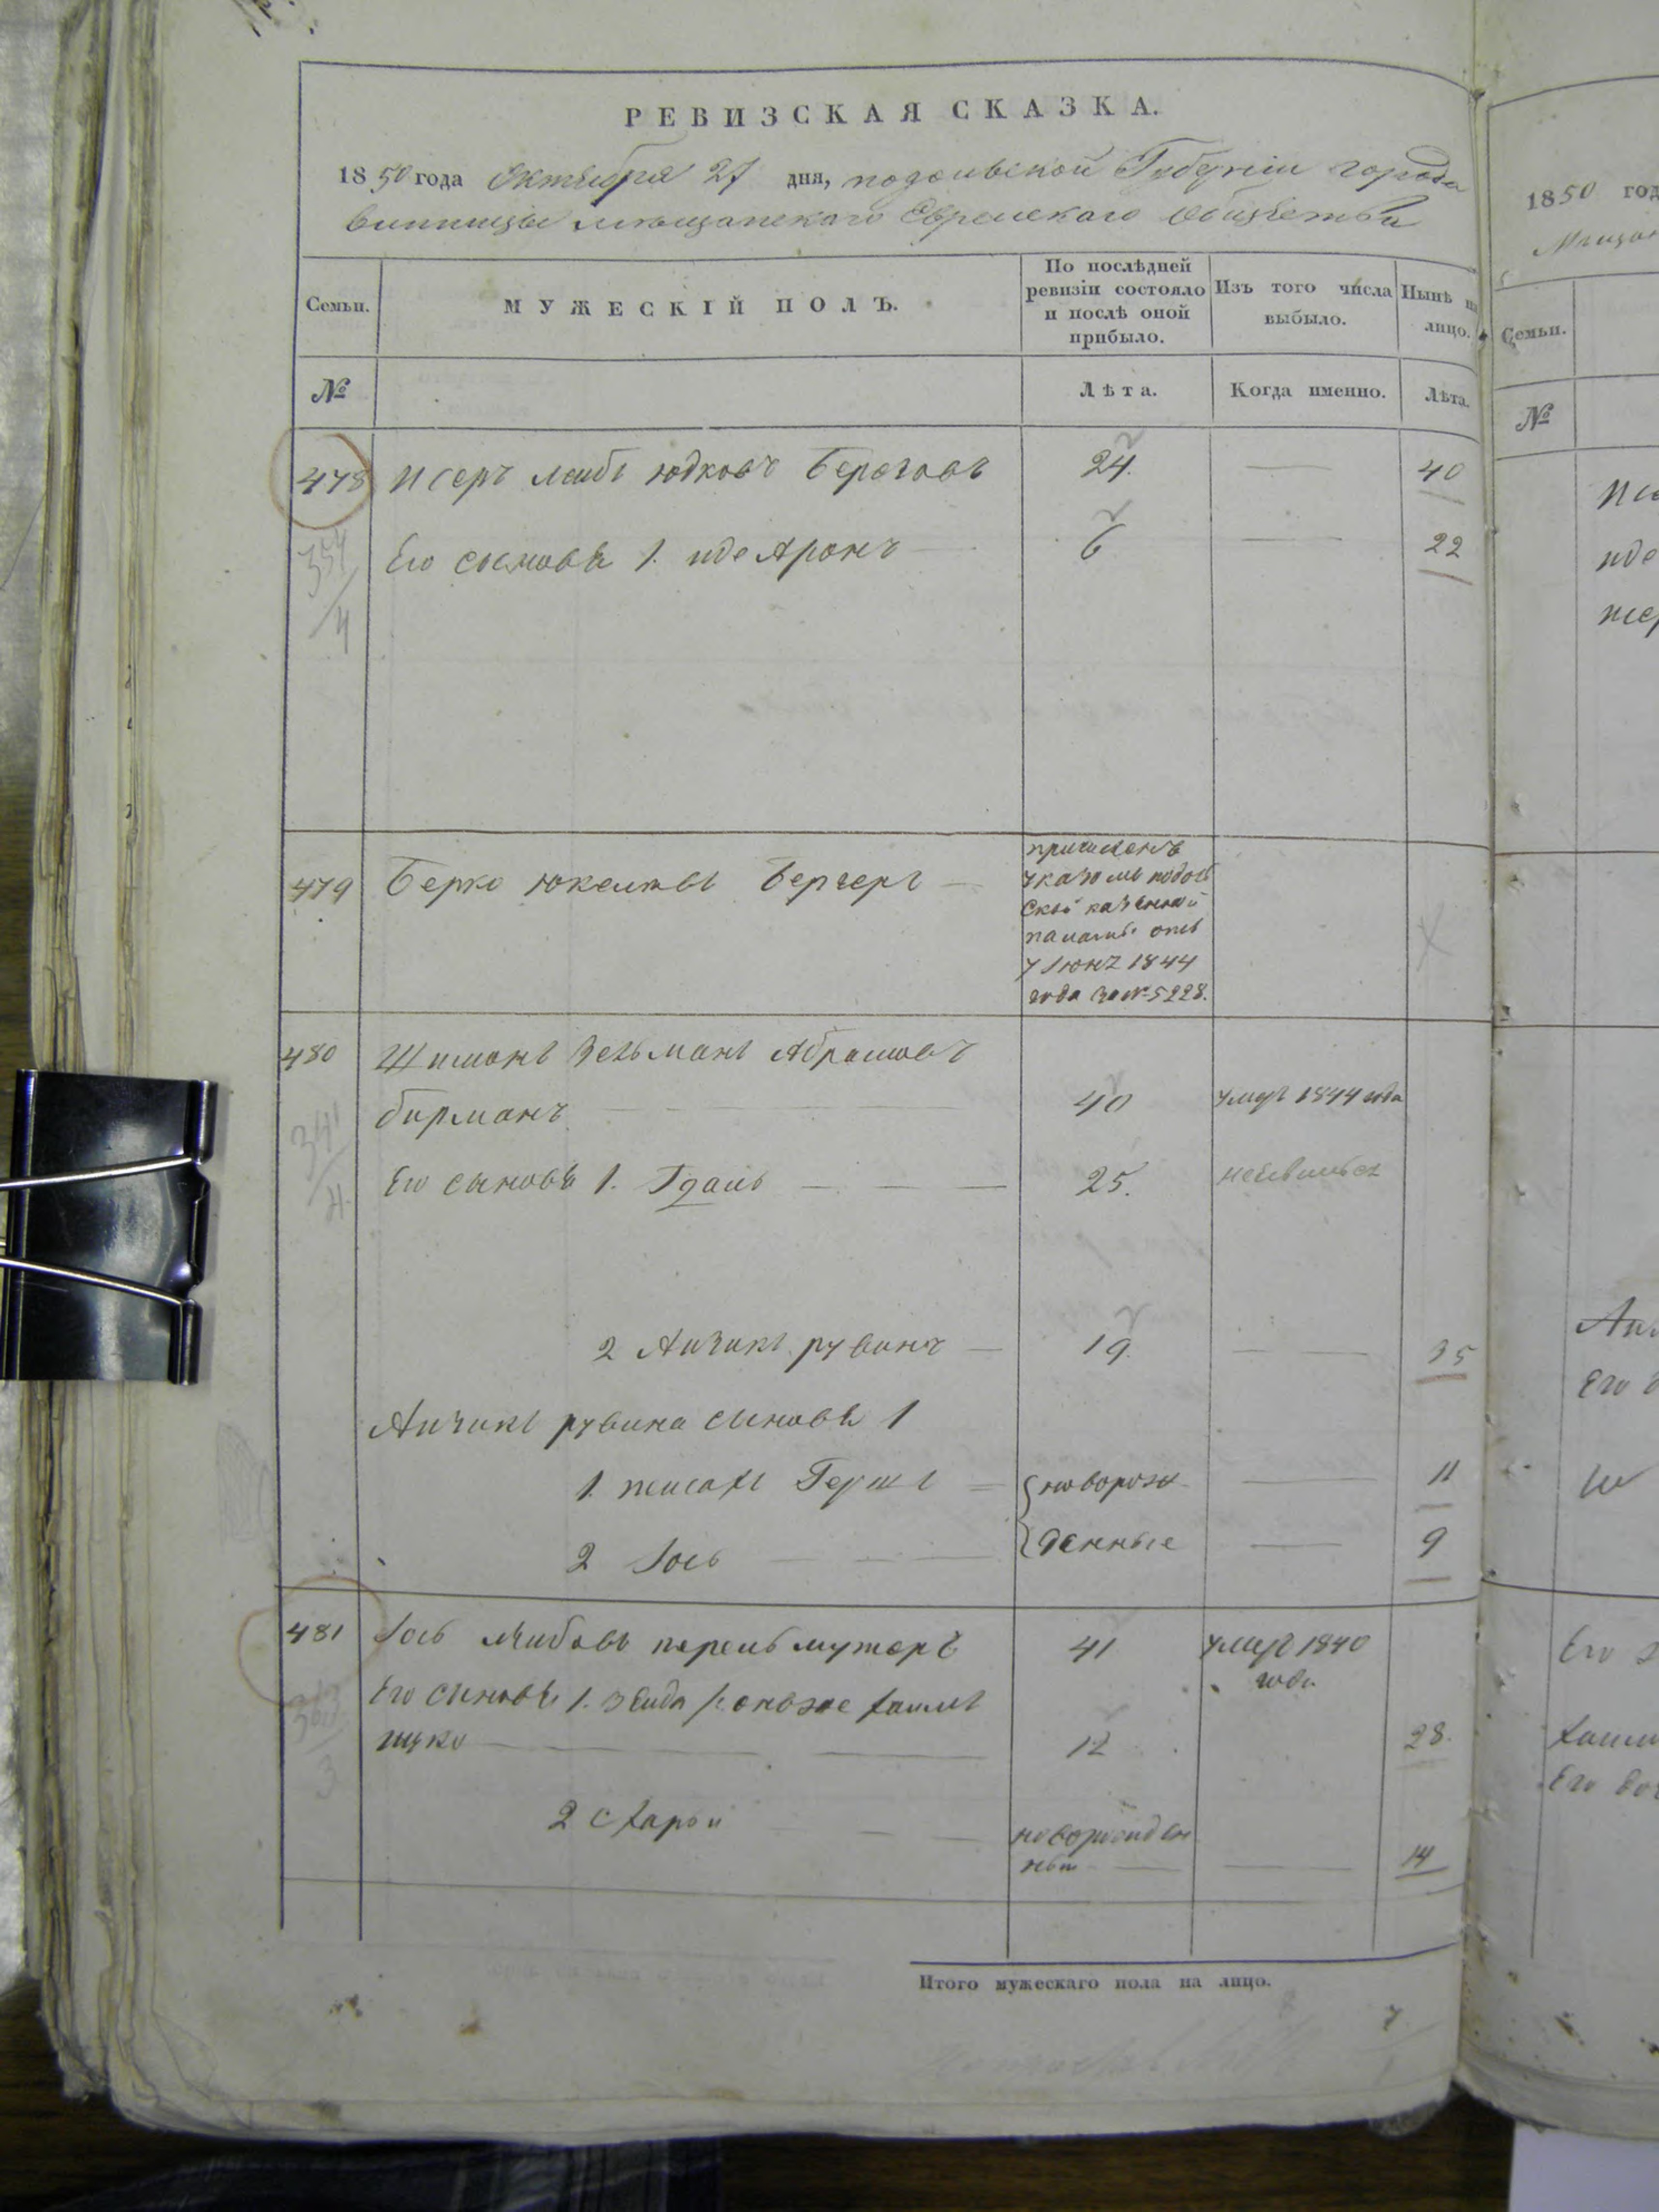 РЕВИЗСКАЯ СКАЗКА.
1850 года Октября 27 дня, подольской Губерніи города
винницы мѣщанскаго Еврейскаго общества
Семьи.
МУЖЕСКІЙ ПОЛЪ.
По послѣдней
ревизіи состояло
и послѣ оной
прибыло.
Изъ того числа
выбыло.
Нынѣ
лицо.
№
Лѣта.
Когда именно.
Лѣта.
478 Исеръ Лейбъ Юдковъ 24. 40
Его сыновья 1. Иде Аронъ 6 22
354
4
479 Берко Бергеръ
причисленъ
указомъ подоль
ской казенной
палаты отъ
7 Іюня 1844
года за № 5228.
480 Шимонъ Зельманъ Абрамовъ
бирманъ 40 умеръ 1844 года
341
4.
Его сыновья 1. Гдаль 25. неявился
2 Айзикъ рувинъ 19. 35
Айзикъ рувина сыновья 1
1. Гершъ новорож 11
2 Іось денные 9
481 Іось Лейбовъ перельмутеръ 41 умеръ 1840
года
Его сыновья 1. Зейда онъ же Хаимъ
ицко 12 28.
363
3
2 новорожден
ный 14
Итого мужескаго пола на лицо.
7
1850 год
Семьи.
№
Исе
иде
Его
Его
Хаим
Его доч